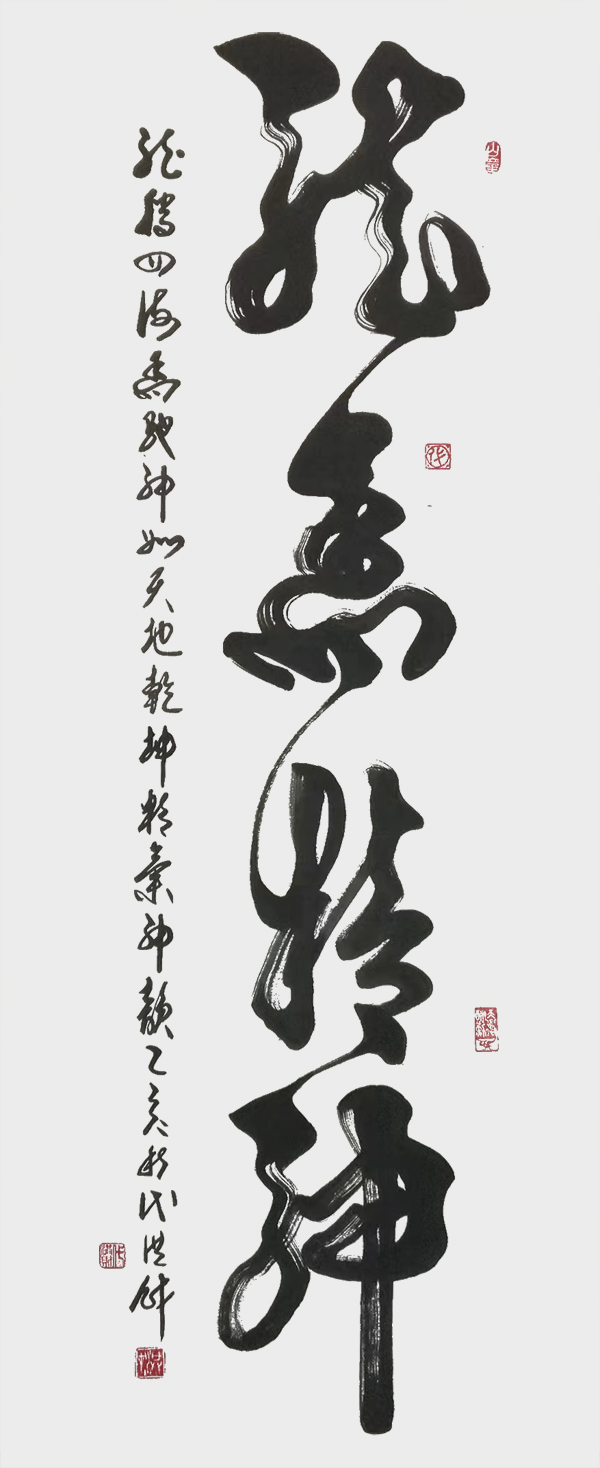 龍馬精神
龍騰四海馬馳神州天地乾坤精氣神韻亥秋代洪